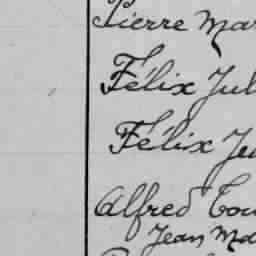 Pierre Mar
Félix Jul
Félix Je
Alfred Tou
Jean Ma